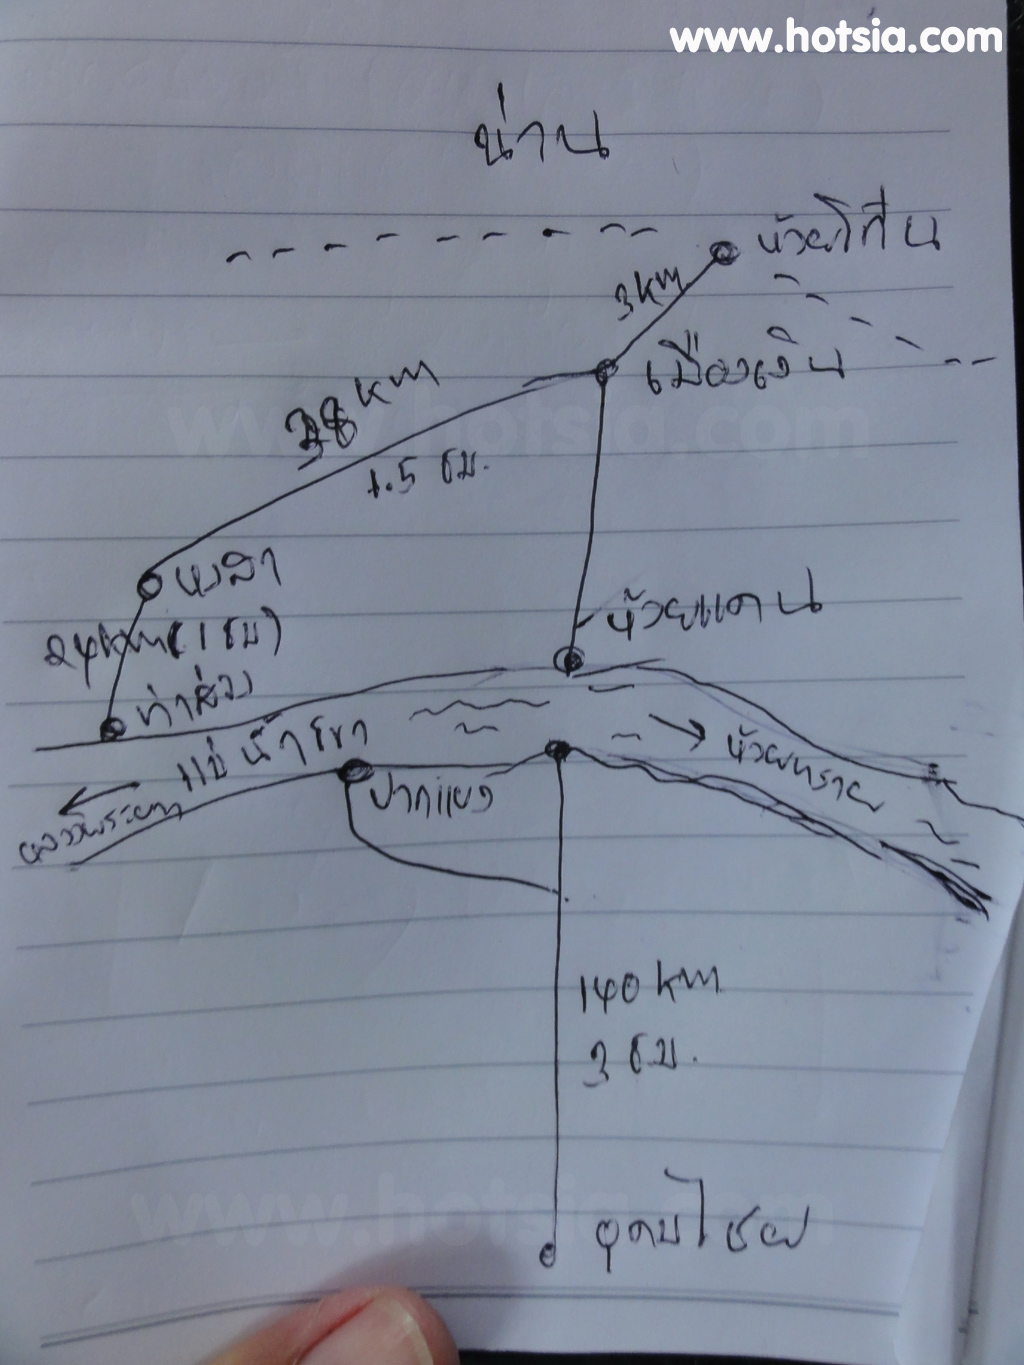 www.hotsia.com
น่าน
ห้วยโก๋น
3 km
เมืองเงิน
38 km
www.hotsia.com
1.5 ชม.
หงสา
ห้วยแคน
24 km (1 ชม)
ท่าส่วง
แม่น้ำโขง
ห้วยทราย
ปากแบง
หลวงพระบาง
140 km
3 ชม.
www.hotsia.com
อุดมไชย